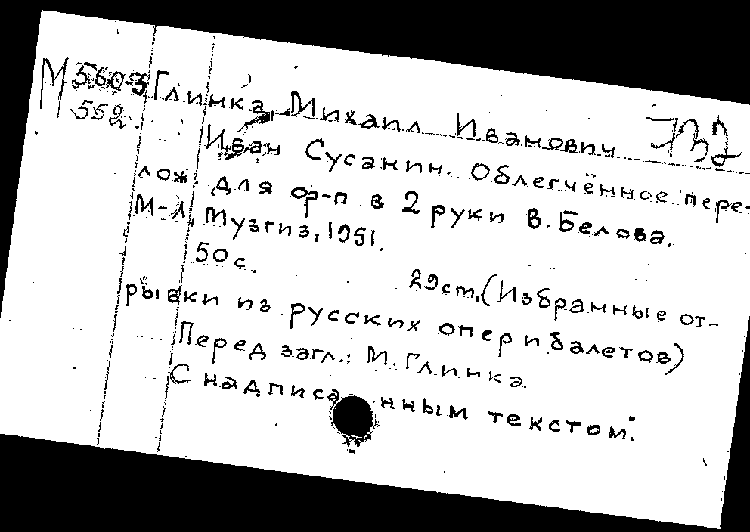 М 560-3 Глинка Михаил Иванович
552.
Иван Сусанин. Облегчённое пере-
лож. для ф-п в 2 руки В. Белова.
М-Л, Музгиз, 1951.
50с. 29cm. (Избранные от-
рывки из русских опер и балетов)
Перед загл.: М. Глинка.
С надписанным текстом.